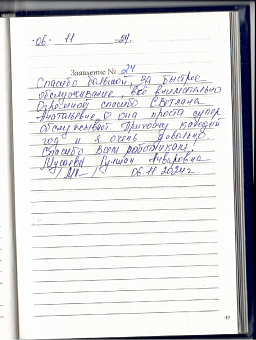 06. 11 2024.
Заявление № 24
Спасибо большой, за быстрое
обслуживание, всё внимательно
Огромной спасибо Светлана
Анатольевне, она проста супер
обслуживает. Прихожу каждый
год и я очень довольна.
Спасибо всем работникам!
Мусаева Гулшан Анваровна
06.11.2024г.
19